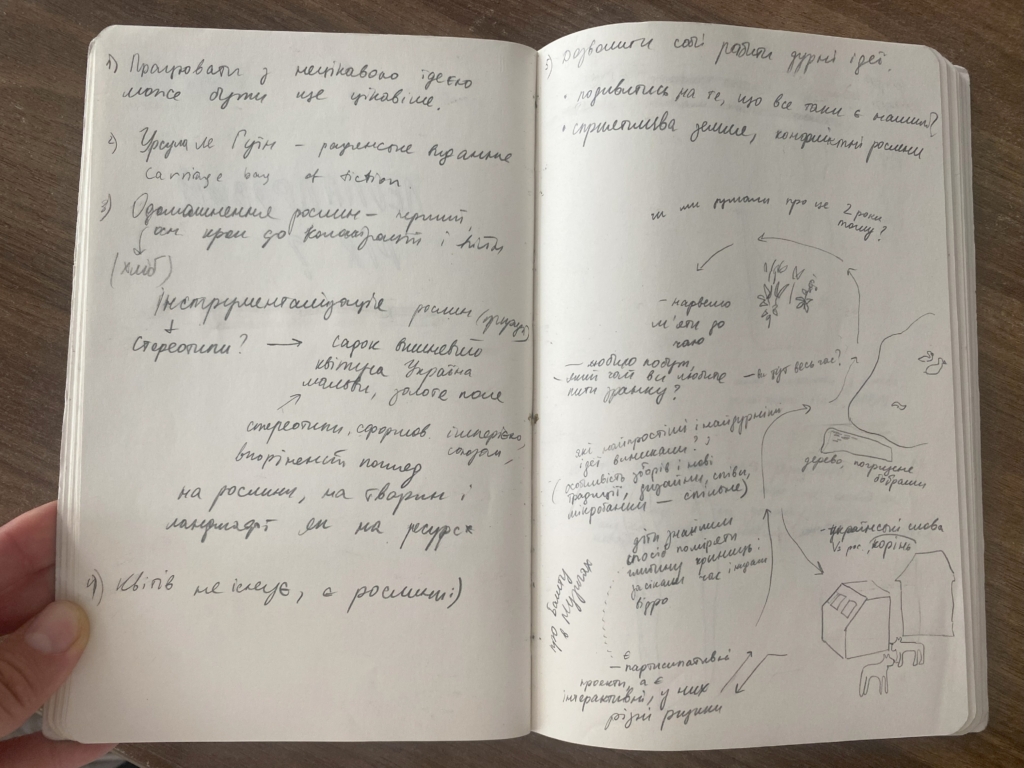 1) Працювати з нецікавою ідеєю
може бути ще цікавіше.
2) Урсула Ле Гуїн – радянське видання
Carriage bag of fiction.
3) Одомашнення рослин – перший
осн. крок до колоніальності і
(хліб)
Інструменталізація рослин
Стереотипи? → садок вишневий
квітуча Україна
мальви, золоте поле
стереотипи, сформов. імперією,
союзом,
вкорінений погляд
на рослини, на тварин і
ландшафт як на ресурс
4) Квітів не існує, є рослини :)
5) Дозволити собі робити дурні ідеї.
• подивитись на те, що все таки є нашим?
• сприятлива земля, конфліктні рослини
чи ми думали про це 2 роки
тому?
– нарвемо
м'яти до
чаю
– любимо побут,
– який чай всі люблять
пити зранку?
– ви тут весь час?
які найпростіші і найдурніші
ідеї виникали?
(особливість узорів і нові
традиції, дизайни, співи,
мікротанці – спільне)
дерево, погризене
бобрами
– українські слова
рос. корінь
діти знайшли
спосіб поміряти
глибину криниці:
засікали час і кидали
відро
про бавну
в мурахах
– є
партисипативні
проекти, а є
інтерактивні, у них
різні рицики